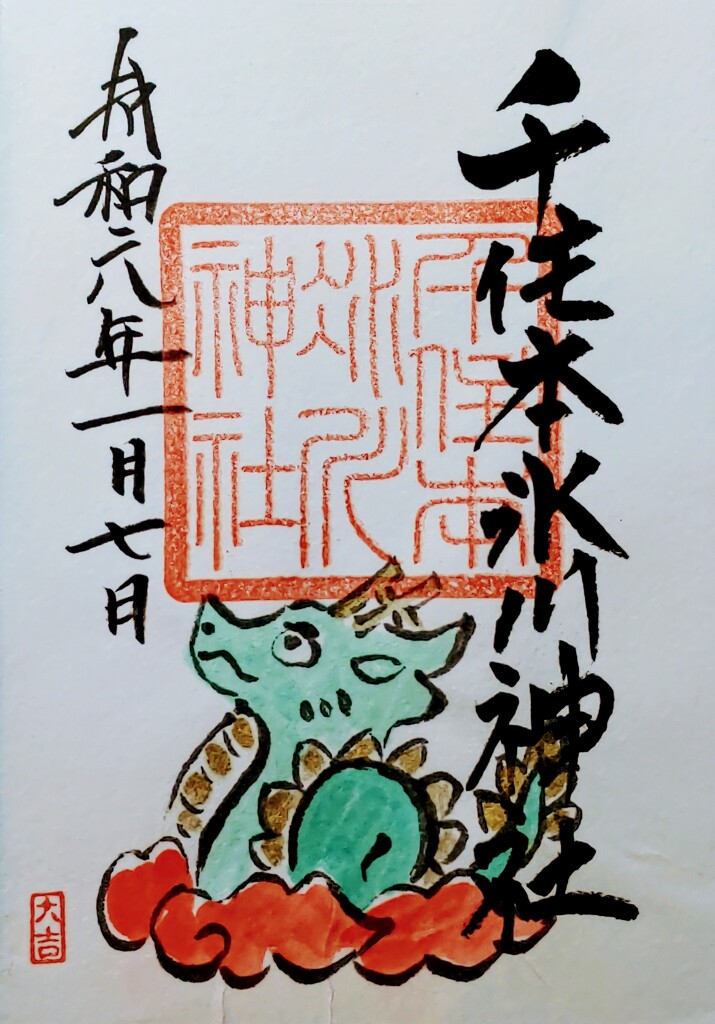 千住本氷川神社
千住本
氷川
神社
令和六年一月七日
大吉